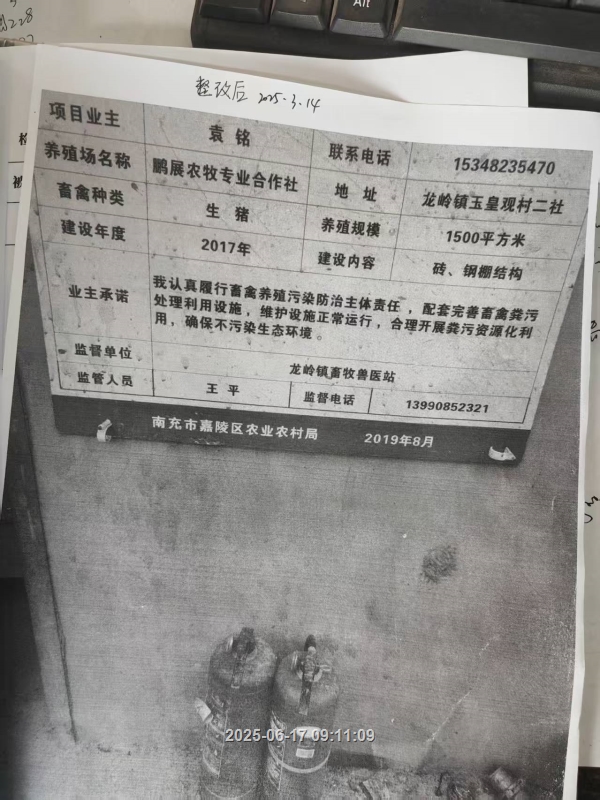 Alt
228
整改后 2025.3.14
项目业主 袁铭 联系电话 15348235470
养殖场名称 鹏展农牧专业合作社 地址 龙岭镇玉皇观村二社
畜禽种类 生猪 养殖规模 1500平方米
建设年度 2017年 建设内容 砖、钢棚结构
业主承诺
我认真履行畜禽养殖污染防治主体责任，配套完善畜禽粪污
处理利用设施，维护设施正常运行，合理开展粪污资源化利
用，确保不污染生态环境。
监督单位 龙岭镇畜牧兽医站
监管人员 王平 监督电话 13990852321
南充市嘉陵区农业农村局 2019年8月
2025-06-17 09:11:09